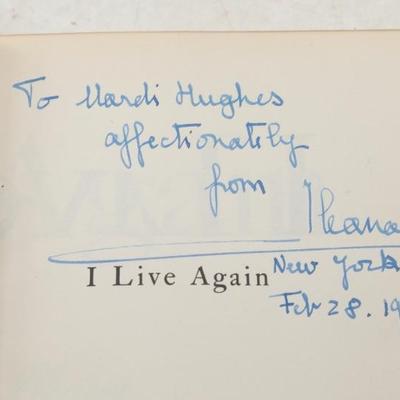 To Mardi Hughes
affectionately
from Ileana
I Live Again
New York
Feb 28. 19